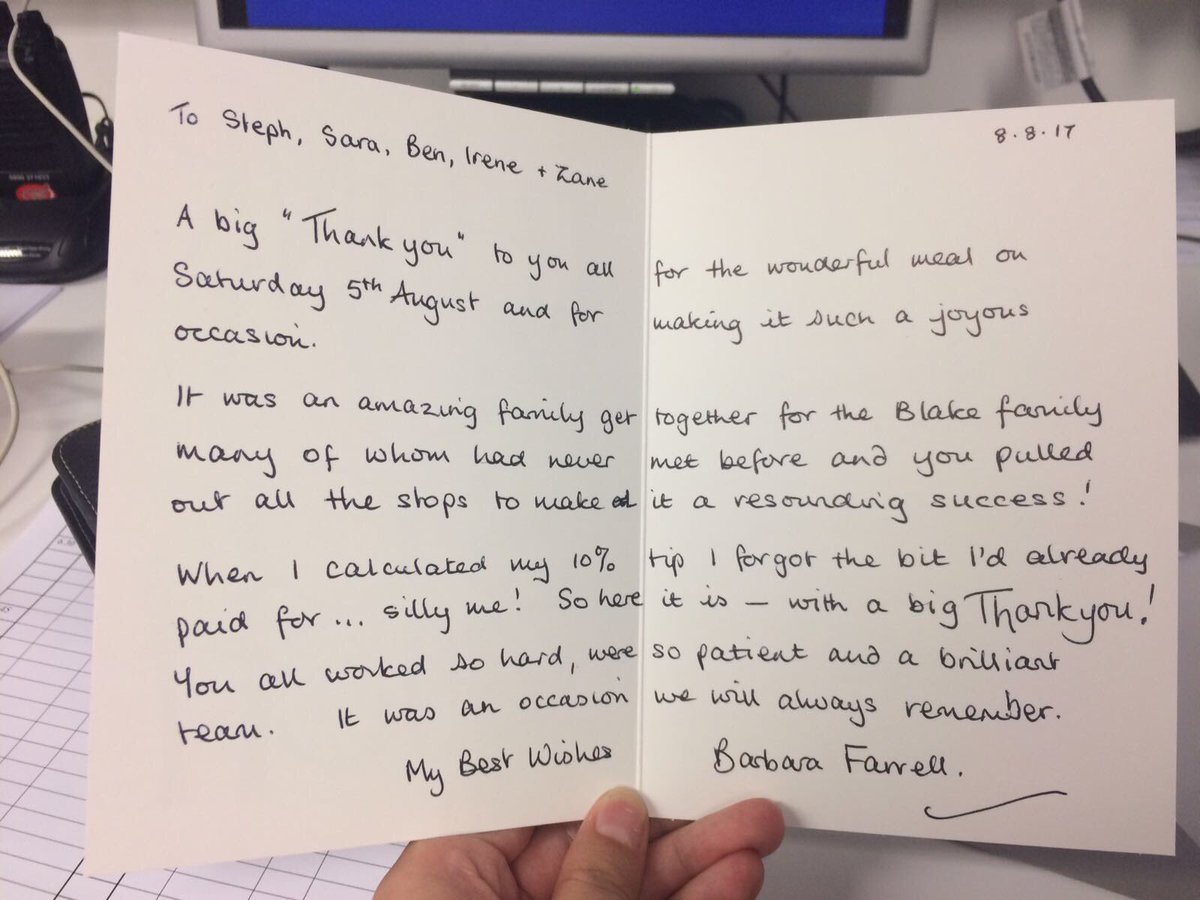 8.8.17
To Steph, Sara, Ben, Irene + Zane
A big "Thank you" to you all for the wonderful meal on
Saturday 5th August and for making it such a joyous
occasion.
It was an amazing family get together for the Blake family
many of whom had never met before and you pulled
out all the stops to make it a resounding success!
When I calculated my 10% tip I forgot the bit I'd already
paid for... silly me! So here it is – with a big Thankyou!
You all worked so hard, were so patient and a brilliant
team. It was an occasion we will always remember.
My Best Wishes Barbara Farrell.